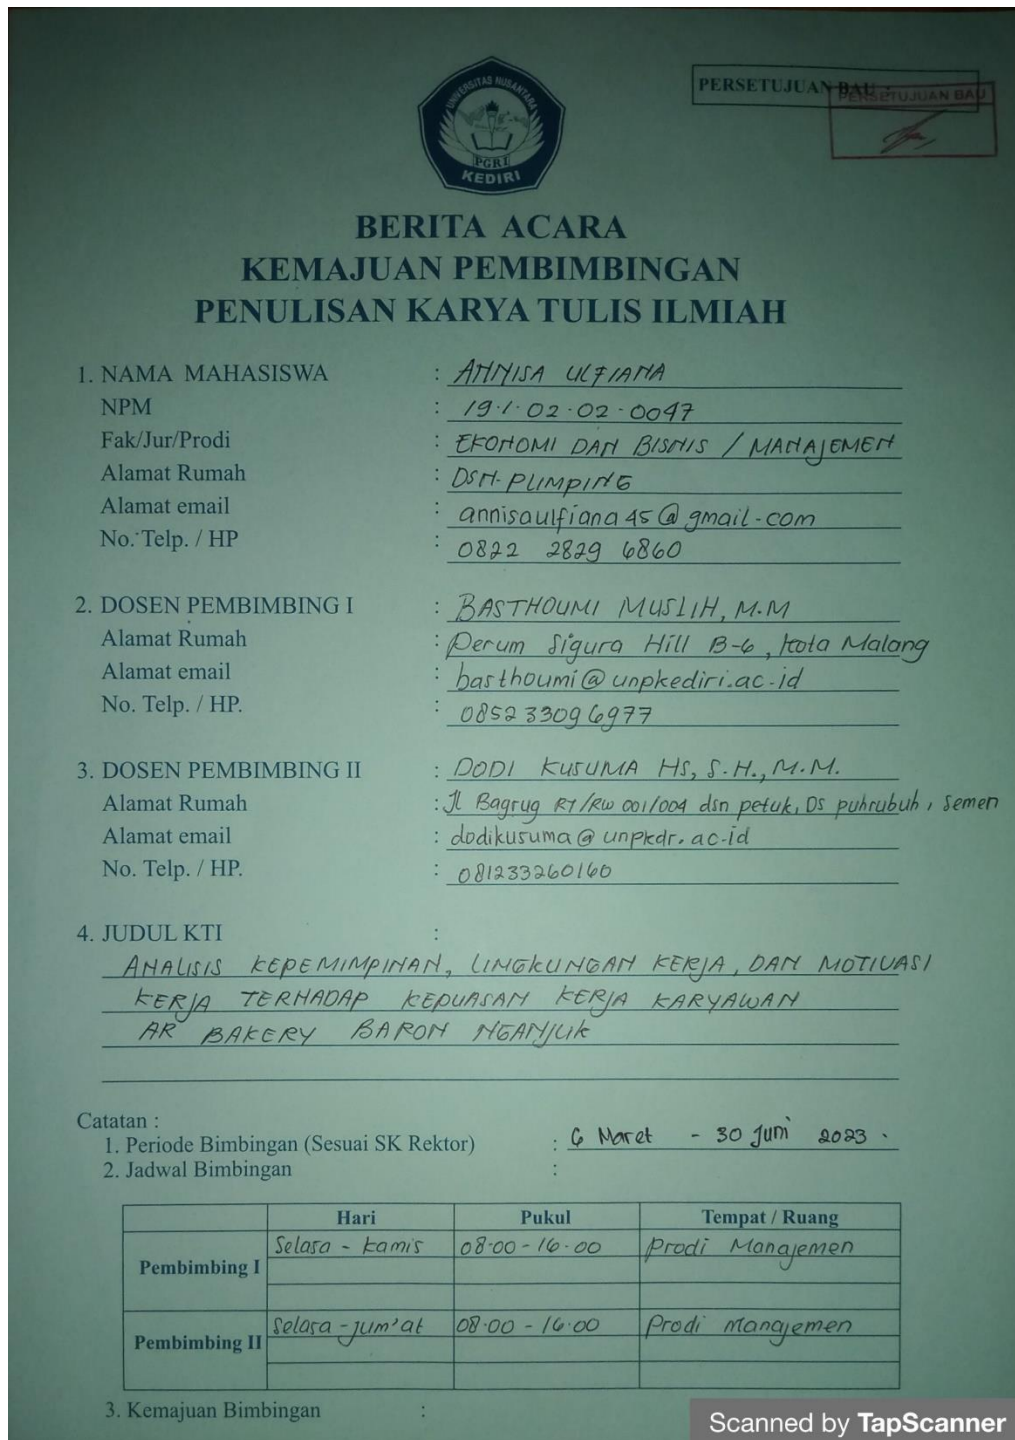 UNIVERSITAS NUSANTARA
PGRI
KEDIRI
PERSETUJUAN BAU :
PERSETUJUAN BAU
BERITA ACARA
KEMAJUAN PEMBIMBINGAN
PENULISAN KARYA TULIS ILMIAH
1. NAMA MAHASISWA : ANNISA ULFIANA
NPM : 19.1.02.02.0047
Fak/Jur/Prodi : EKONOMI DAN BISNIS / MANAJEMEN
Alamat Rumah : DSN. PLIMPING
Alamat email : annisaulfiana45@gmail.com
No. Telp. / HP : 0822 2829 6860
2. DOSEN PEMBIMBING I : BASTHOUMI MUSLIH, M.M
Alamat Rumah : Perum Sigura Hill B-6, Kota Malang
Alamat email : basthoumi@unpkediri.ac.id
No. Telp. / HP. : 085233096977
3. DOSEN PEMBIMBING II : DODI KUSUMA HS, S.H., M.M.
Alamat Rumah : Jl Bagrug RT/RW 001/004 dsn petuk, Ds puhrubuh, Semen
Alamat email : dodikusuma@unpkdr.ac.id
No. Telp. / HP. : 081233260160
4. JUDUL KTI :
ANALISIS KEPEMIMPINAN, LINGKUNGAN KERJA, DAN MOTIVASI
KERJA TERHADAP KEPUASAN KERJA KARYAWAN
AR BAKERY BARON NGANJUK
Catatan :
1. Periode Bimbingan (Sesuai SK Rektor) : 6 Maret - 30 Juni 2023.
2. Jadwal Bimbingan :
Hari Pukul Tempat / Ruang
Pembimbing I Selasa - Kamis 08.00 - 16.00 Prodi Manajemen
Pembimbing II Selasa - Jum'at 08.00 - 16.00 Prodi Manajemen
3. Kemajuan Bimbingan :
Scanned by TapScanner